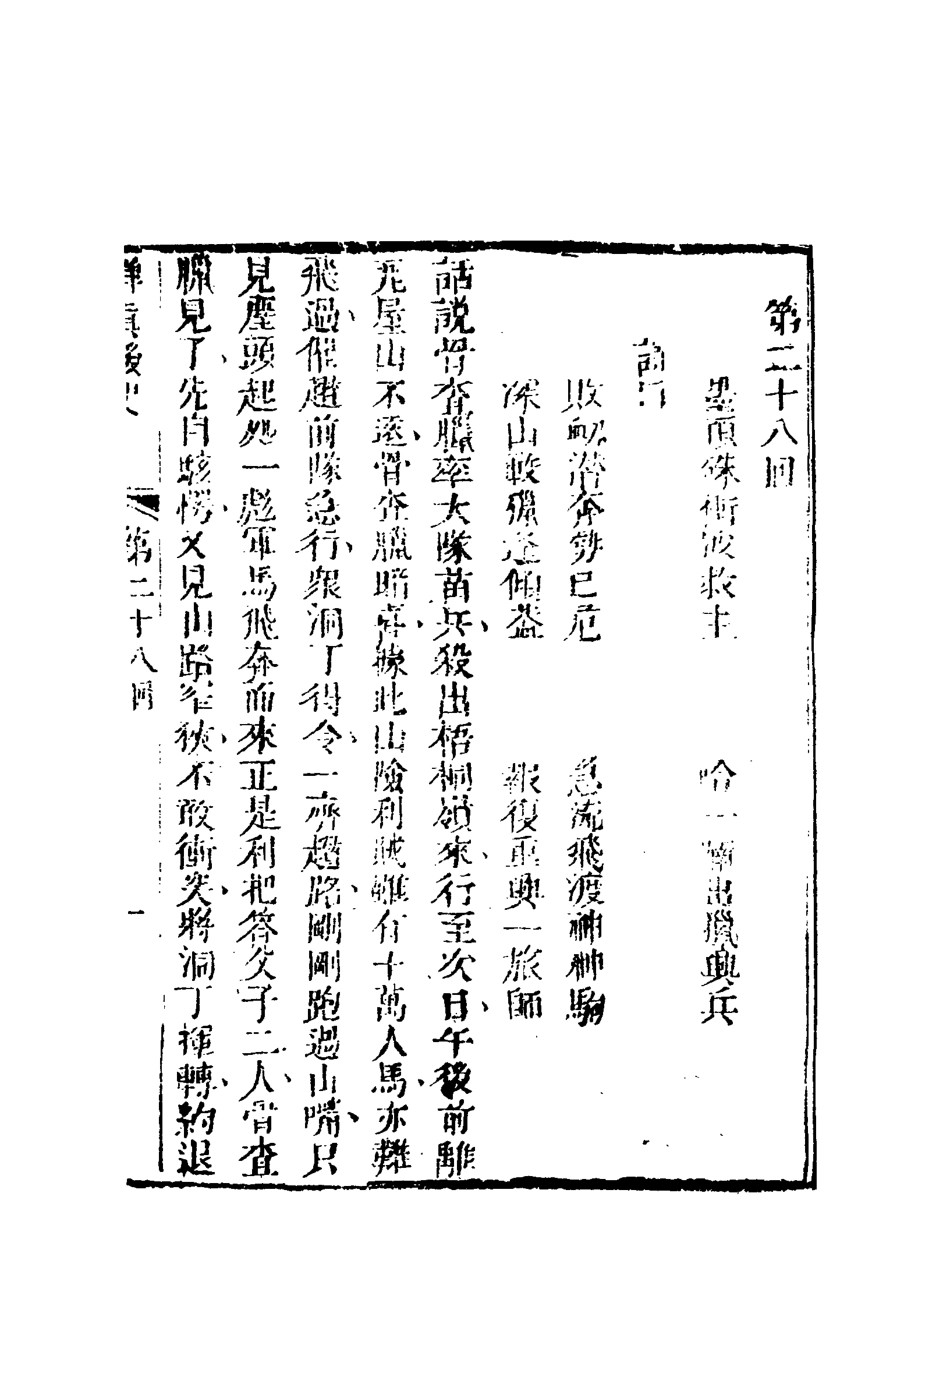 第二十八回
墨頂殊衝波救主　哈一　出獵興兵
詩曰
敗衂潛奔勢已危　急流飛渡神神駒
深山畋獵逢傾蓋　報復重興一旅師
話說骨查臘率大隊苗兵、殺出梧桐嶺來、行至次日、午後前離
兀屋山不遠、骨查臘暗喜、緣此山險利賊雖有十萬人馬、亦難
飛過、催趲前隊急行、衆洞丁得令、一齊趲路、剛剛跑過山嘴、只
見塵頭起処一彪軍馬飛奔而來正是利把答父子二人、骨查
臘見了、先自駭愕、又見山路窄狹、不敢衝突、將洞丁揮轉、約退
禪眞後史　第二十八回　一